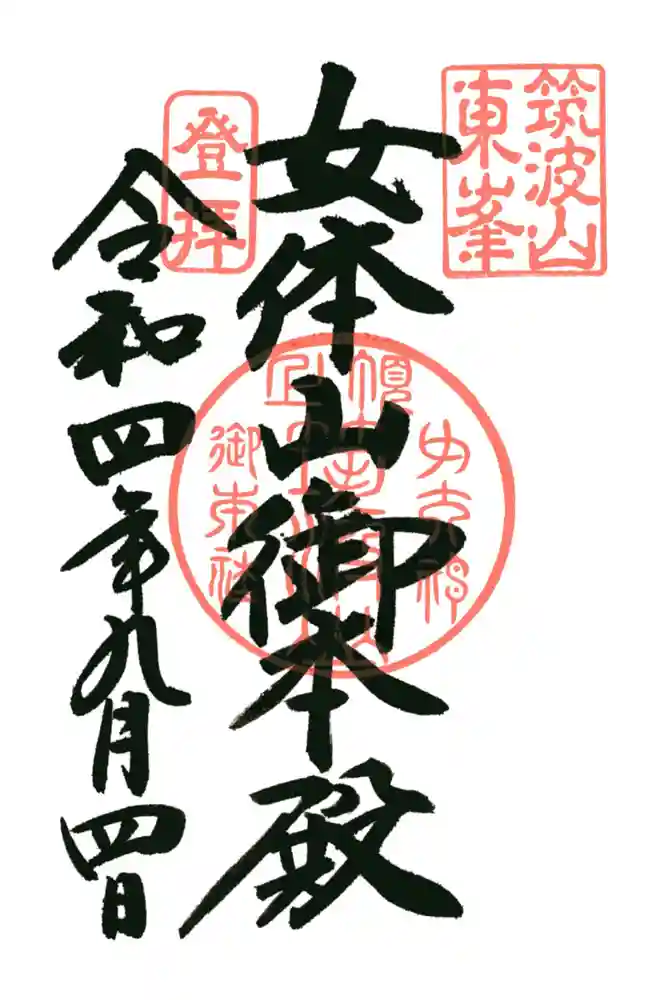 筑波山
東峯
女体山御本殿
登拝
令和四年九月四日